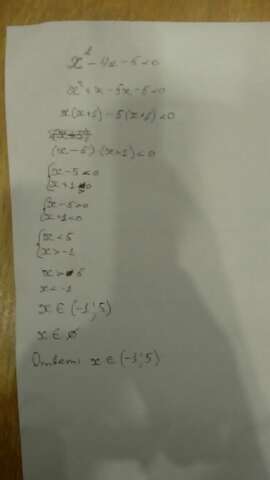 x² - 4x - 5 < 0
x² + x - 5x - 5 < 0
x(x+1) - 5(x+1) < 0
(x-5)·(x+1) < 0
{x-5<0
x+1>0
{x-5>0
x+1<0
{x<5
x>-1
x>5
x<-1
x∈(-1;5)
x∈∅
Ответ: x∈(-1;5)